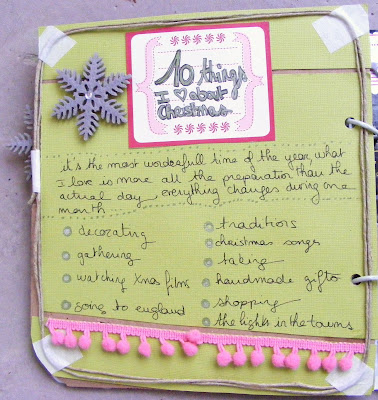 10 things
I ♡ about
Christmas
it's the most wonderfull time of the year, what
I love is more all the preparation than the
actual day, everything changes during one
month
decorating
gathering
watching Xmas films
going to england
traditions
christmas songs
baking
handmade gifts
shopping
the lights in the towns